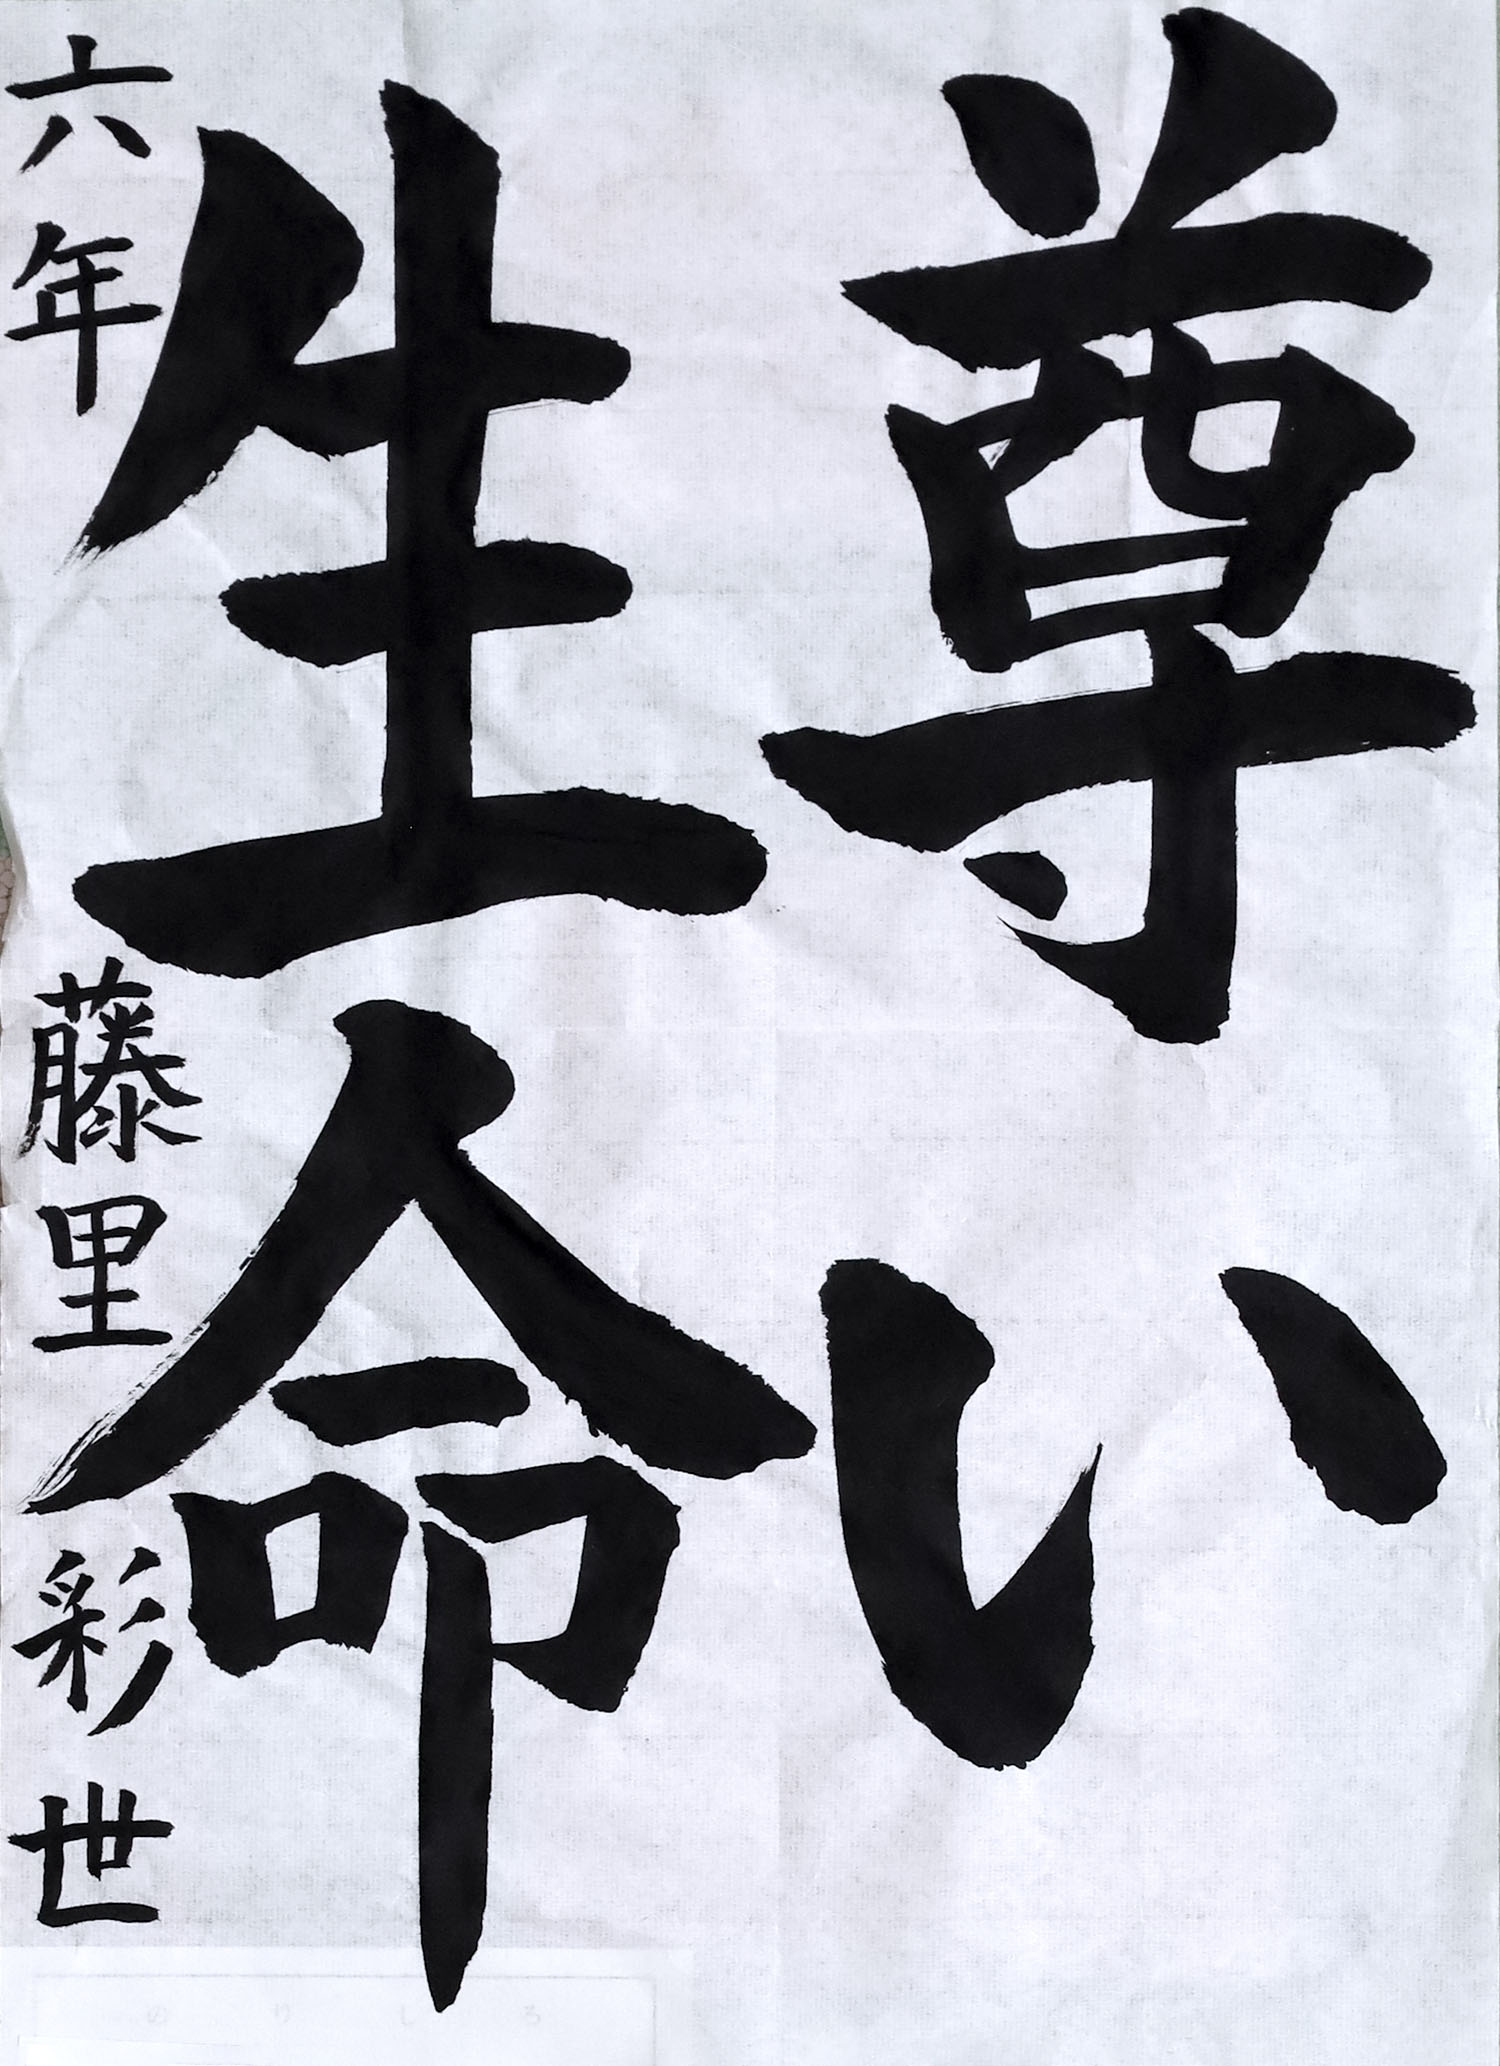 尊い
生命
六年 藤里彩世
のりしろ